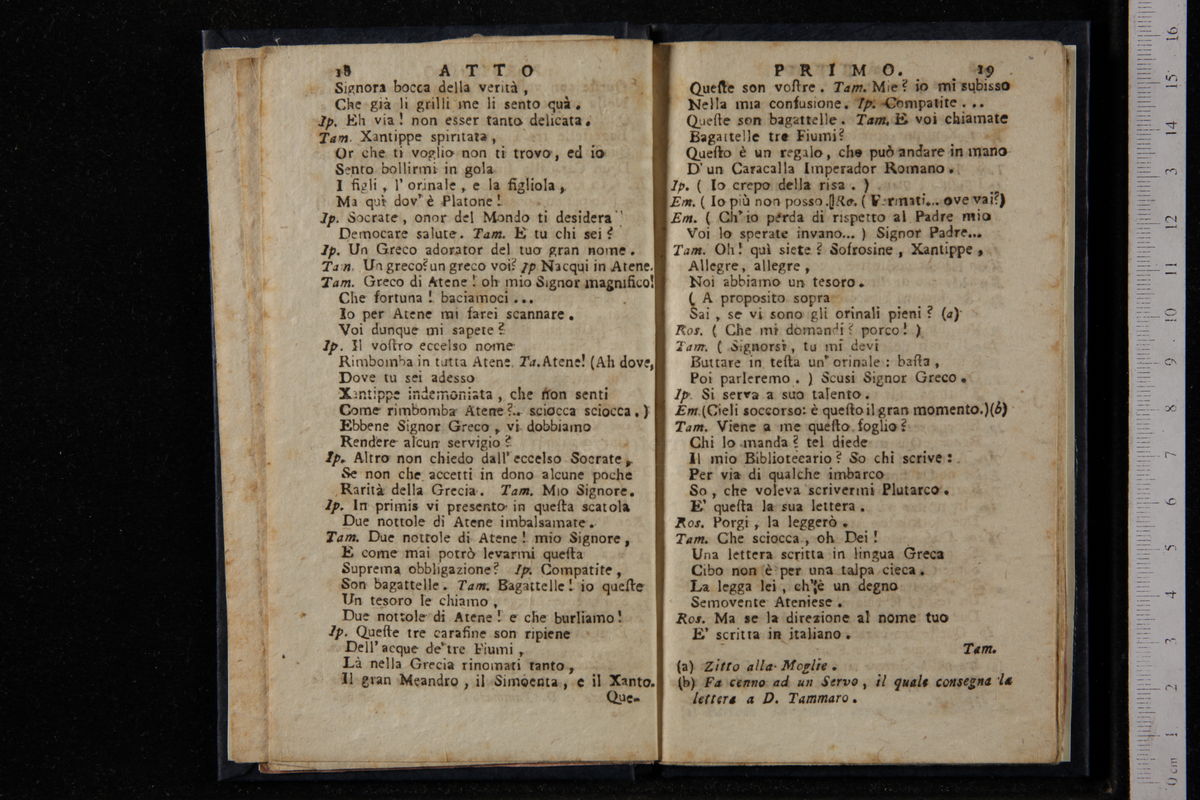 18 ATTO
Signora bocca della verità ,
Che già li grilli me li sento quà .
Ip. Eh via ! non esser tanto delicata .
Tam. Xantippe spiritata ,
Or che ti voglio non ti trovo , ed io
Sento bollirmi in gola
I figli , l' orinale , e la figliola ,
Ma qui dov' è Platone !
Ip. Socrate , onor del Mondo ti desidera
Democare salute . Tam. E tu chi sei ?
Ip. Un Greco adorator del tuo gran nome .
Tam. Un greco? un greco voi? Ip Nacqui in Atene.
Tam. Greco di Atene ! oh mio Signor magnifico!
Che fortuna ! baciamoci ...
Io per Atene mi farei scannare .
Voi dunque mi sapete ?
Ip. Il voſtro eccelso nome
Rimbomba in tutta Atene. Ta. Atene! (Ah dove,
Dove tu sei adesso
Xantippe indemoniata , che non senti
Come rimbomba Atene ?.. sciocca sciocca . )
Ebbene Signor Greco , vi dobbiamo
Rendere alcun servigio ?
Ip. Altro non chiedo dall' eccelso Socrate ,
Se non che accetti in dono alcune poche
Rarità della Grecia . Tam. Mio Signore .
Ip. In primis vi presento in queſta scatola
Due nottole di Atene imbalsamate .
Tam. Due nottole di Atene ! mio Signore ,
E come mai potrò levarmi queſta
Suprema obbligazione? Ip. Compatite ,
Son bagattelle . Tam. Bagattelle ! io queſte
Un tesoro le chiamo ,
Due nottole di Atene ! e che burliamo !
Ip. Queſte tre carafine son ripiene
Dell' acque de' tre Fiumi ,
Là nella Grecia rinomati tanto ,
Il gran Meandro , il Simoenta , e il Xanto.
Que-
PRIMO. 19
Queſte son voſtre . Tam. Mie ? io mi subisso
Nella mia confusione . Ip. Compatite ...
Queſte son bagattelle . Tam. E voi chiamate
Bagattelle tre Fiumi ?
Queſto è un regalo , che può andare in mano
D' un Caracalla Imperador Romano .
Ip. ( Io crepo della risa . )
Em. ( Io più non posso .)Ro. ( Fermati... ove vai?)
Em. ( Ch' io perda di rispetto al Padre mio
Voi lo sperate invano... ) Signor Padre...
Tam. Oh ! quì siete ? Sofrosine , Xantippe ,
Allegre , allegre ,
Noi abbiamo un tesoro .
( A proposito sopra
Sai , se vi sono gli orinali pieni ? (a)
Ros. ( Che mi domandi ? porco ! )
Tam. ( Signorsì , tu mi devi
Buttare in teſta un' orinale : baſta ,
Poi parleremo . ) Scusi Signor Greco .
Ip. Si serva a suo talento .
Em. (Cieli soccorso: è queſto il gran momento.)(b)
Tam. Viene a me queſto foglio ?
Chi lo manda ? tel diede
Il mio Bibliotecario ? So chi scrive :
Per via di qualche imbarco
So , che voleva scrivermi Plutarco .
E' queſta la sua lettera .
Ros. Porgi , la leggerò .
Tam. Che sciocca , oh Dei !
Una lettera scritta in lingua Greca
Cibo non è per una talpa cieca .
La legga lei , ch' è un degno
Semovente Ateniese .
Ros. Ma se la direzione al nome tuo
E' scritta in italiano .
Tam.
(a) Zitto alla Moglie .
(b) Fa cenno ad un Servo , il quale consegna la
lettera a D. Tammaro .